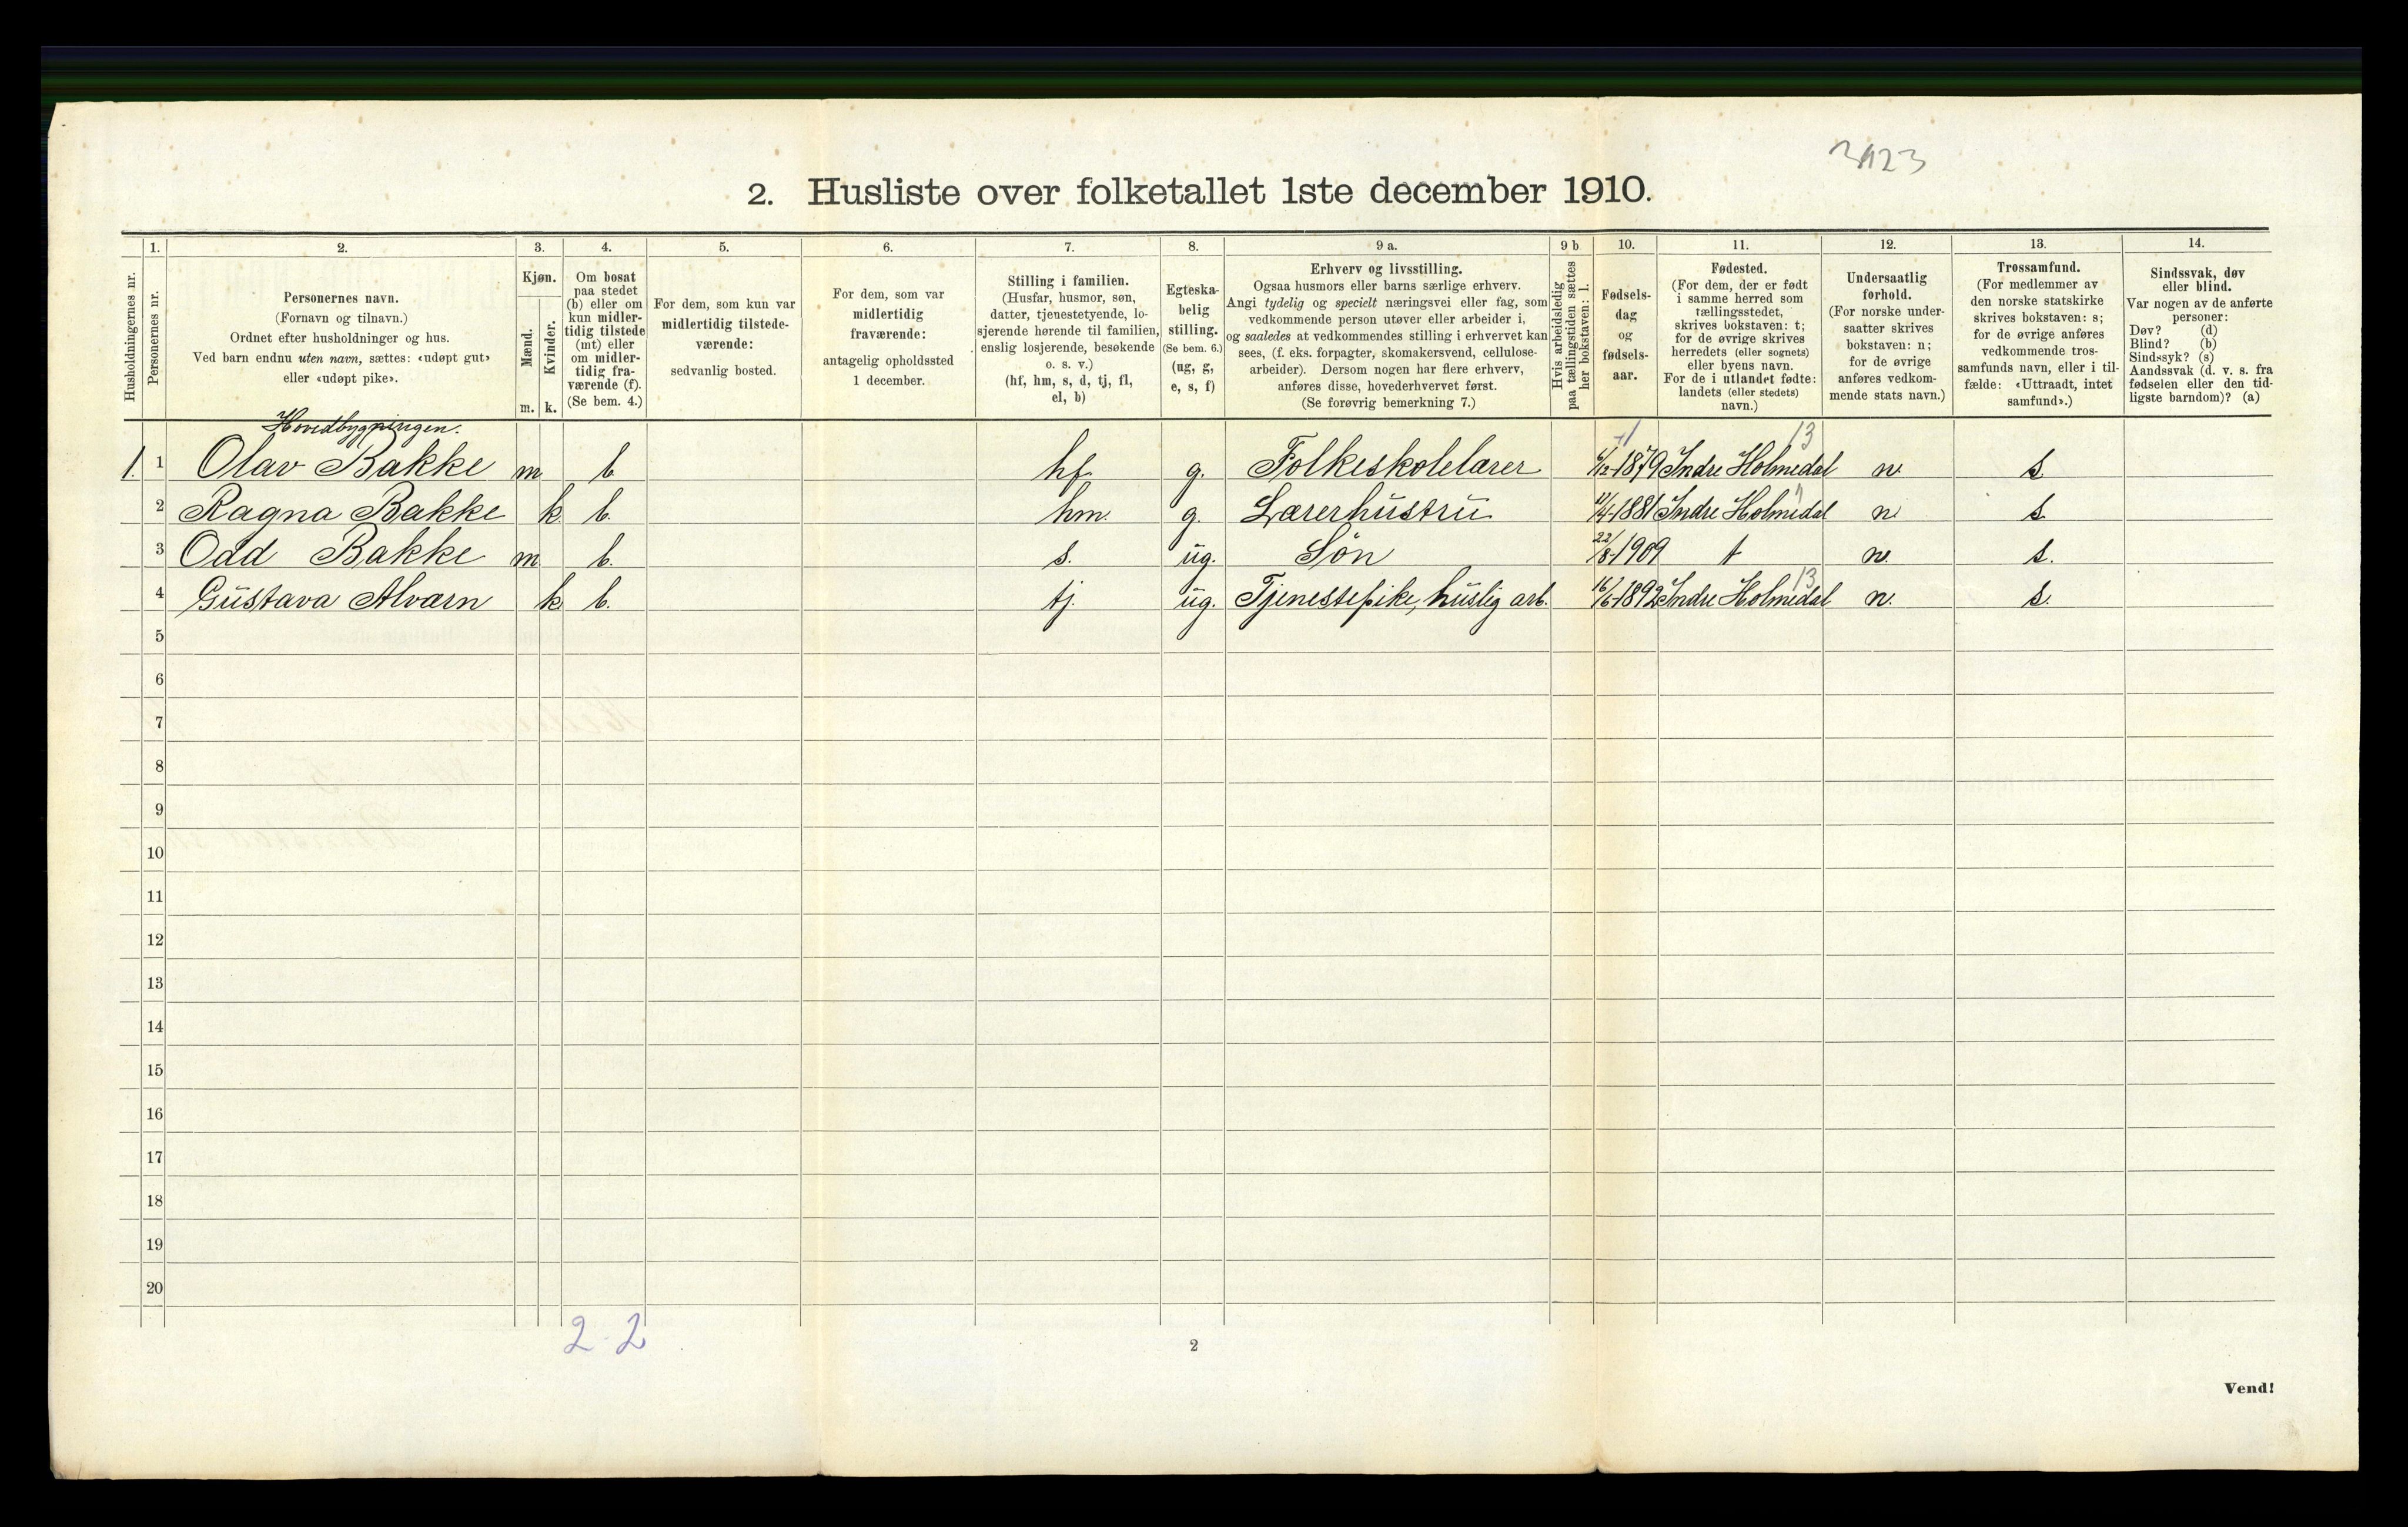 3123
2. Husliste over folketallet 1ste december 1910.
Husholdningernes nr.
1.
Personernes nr.
2.
Personernes navn.
(Fornavn og tilnavn.)
Ordnet efter husholdninger og hus.
Ved barn endnu uten navn, sættes: «udøpt gut»
eller «udøpt pike».
3.
Kjøn.
Mænd.
Kvinder.
m. k.
4.
Om bosat
paa stedet
(b) eller om
kun midler-
tidig tilstede
(mt) eller
om midler-
tidig fra-
værende (f).
(Se bem. 4.)
5.
For dem, som kun var
midlertidig tilstede-
værende:
sedvanlig bosted.
6.
For dem, som var
midlertidig
fraværende:
antagelig opholdssted
1 december.
7.
Stilling i familien.
(Husfar, husmor, søn,
datter, tjenestetyende, lo-
sjerende hørende til familien,
enslig losjerende, besøkende
o. s. v.)
(hf, hm, s, d, tj, fl,
el, b)
8.
Egteska-
belig
stilling.
(Se bem. 6.)
(ug, g,
e, s, f)
9 a.
Erhverv og livsstilling.
Ogsaa husmors eller barns særlige erhverv.
Angi tydelig og specielt næringsvei eller fag, som
vedkommende person utøver eller arbeider i,
og saaledes at vedkommendes stilling i erhvervet kan
sees, (f. eks. forpagter, skomakersvend, cellulose-
arbeider). Dersom nogen har flere erhverv,
anføres disse, hovederhvervet først.
(Se forøvrig bemerkning 7.)
9 b
Hvis arbeidsledig
paa tællingstiden sættes
her bokstaven: l.
10.
Fødsels-
dag
og
fødsels-
aar.
11.
Fødested.
(For dem, der er født
i samme herred som
tællingsstedet,
skrives bokstaven: t;
for de øvrige skrives
herredets (eller sognets)
eller byens navn.
For de i utlandet fødte:
landets (eller stedets)
navn.)
12.
Undersaatlig
forhold.
(For norske under-
saatter skrives
bokstaven: n;
for de øvrige
anføres vedkom-
mende stats navn.)
13.
Trossamfund.
(For medlemmer av
den norske statskirke
skrives bokstaven: s;
for de øvrige anføres
vedkommende tros-
samfunds navn, eller i til-
fælde: «Uttraadt, intet
samfund».)
14.
Sindssvak, døv
eller blind.
Var nogen av de anførte
personer:
Døv? (d)
Blind? (b)
Sindssyk? (s)
Aandssvak (d. v. s. fra
fødselen eller den tid-
ligste barndom)? (a)
Hovedbygningen.
13
1. 1 Olav Bakke m b hf g. Folkeskolelærer 1879 Indre Holmedal n. s
2 Ragna Bakke k b. hm. g. Lærerhustru 1881 Indre Holmedal n s
3 Odd Bakke m b. s. ug. Søn 22/8-1909 t n. s.
13
4 Gustava Alværn k b. tj. ug. Tjenestepike, huslig arb. 16/6-1892 Indre Holmedal n. s.
5
6
7
8
9
10
11
12
13
14
15
16
17
18
19
20
2-2
2
Vend!